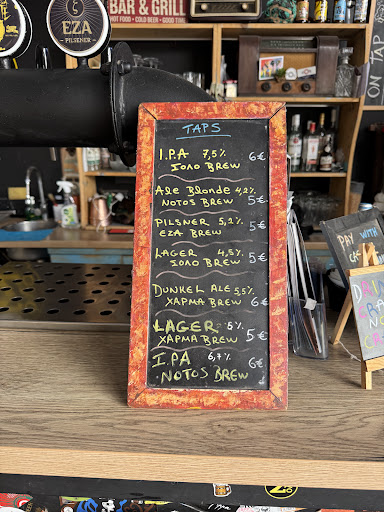 BAR & GRILL
HOT FOOD • COLD BEER • GOOD TIMES
EZA
PILSNER
ON TAP
TAPS
I.P.A 7,5% 6€
ΣΟΛΟ BREW
Ale Blonde 4,2% 5€
NOTOS BREW
PILSNER 5,2% 5€
EZA BREW
LAGER 4,5% 5€
ΣΟΛΟ BREW
DUNKEL ALE 5,5% 6€
XAPMA BREW
LAGER 5% 5€
XAPMA BREW
I.PA 6,7% 6€
NOTOS BREW
PAY WITH